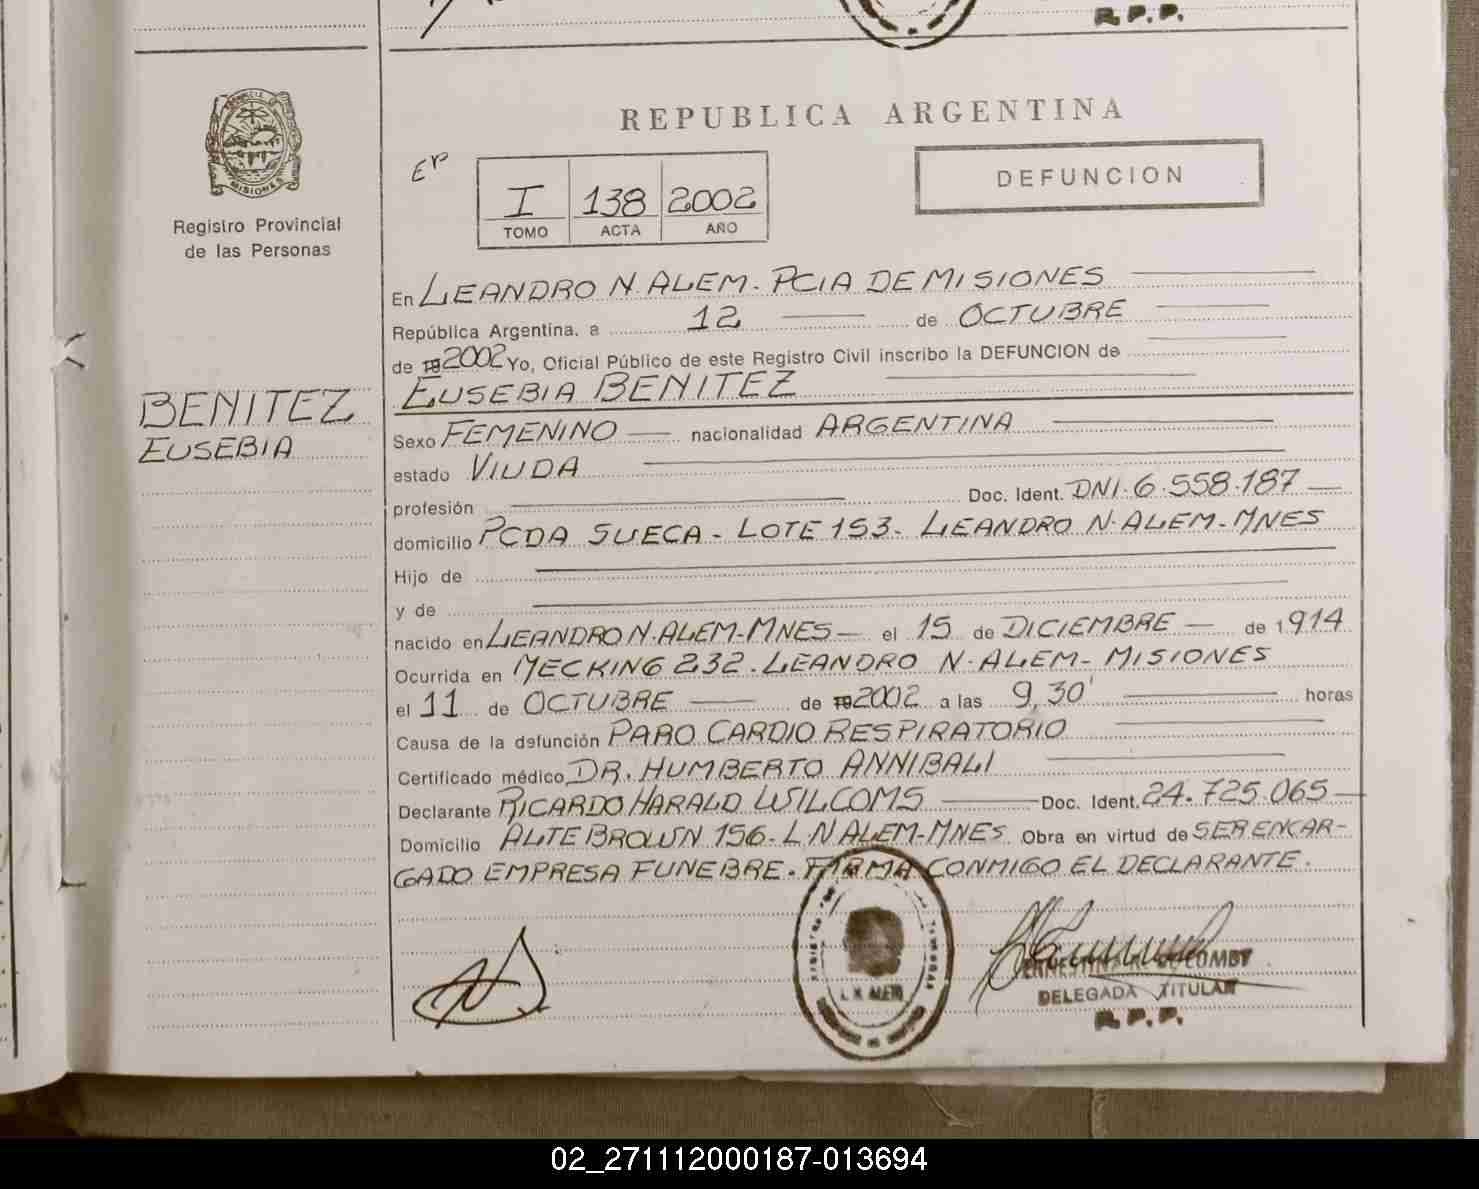 R.P.P.
MISIONES
Registro Provincial
de las Personas
BENITEZ
EUSEBIA
REPUBLICA ARGENTINA
EP
I 138 2002
TOMO ACTA AÑO
DEFUNCION
En LEANDRO N. ALEM. PCIA DE MISIONES
República Argentina, a 12 de OCTUBRE
de 19 2002 Yo, Oficial Público de este Registro Civil inscribo la DEFUNCION de
EUSEBIA BENITEZ
Sexo FEMENINO nacionalidad ARGENTINA
estado VIUDA
profesión Doc. Ident. DNI. 6.558.187
domicilio PCDA SUECA - LOTE 153. LEANDRO N. ALEM - MNES
Hijo de
y de
nacido en LEANDRO N. ALEM - MNES el 15 de DICIEMBRE de 1914
Ocurrida en MECKING 232. LEANDRO N. ALEM - MISIONES
el 11 de OCTUBRE de 19 2002 a las 9,30' horas
Causa de la defunción PARO CARDIO RESPIRATORIO
Certificado médico DR. HUMBERTO ANNIBALI
Declarante RICARDO HARALD WILCOMS Doc. Ident. 24.725.065
Domicilio ALTE BROWN 156 - L. N ALEM - MNES Obra en virtud de SER ENCAR-
GADO EMPRESA FUNEBRE. FIRMA CONMIGO EL DECLARANTE.
L. N. ALEM
DELEGADA TITULAR
R.P.P.
02_271112000187-013694